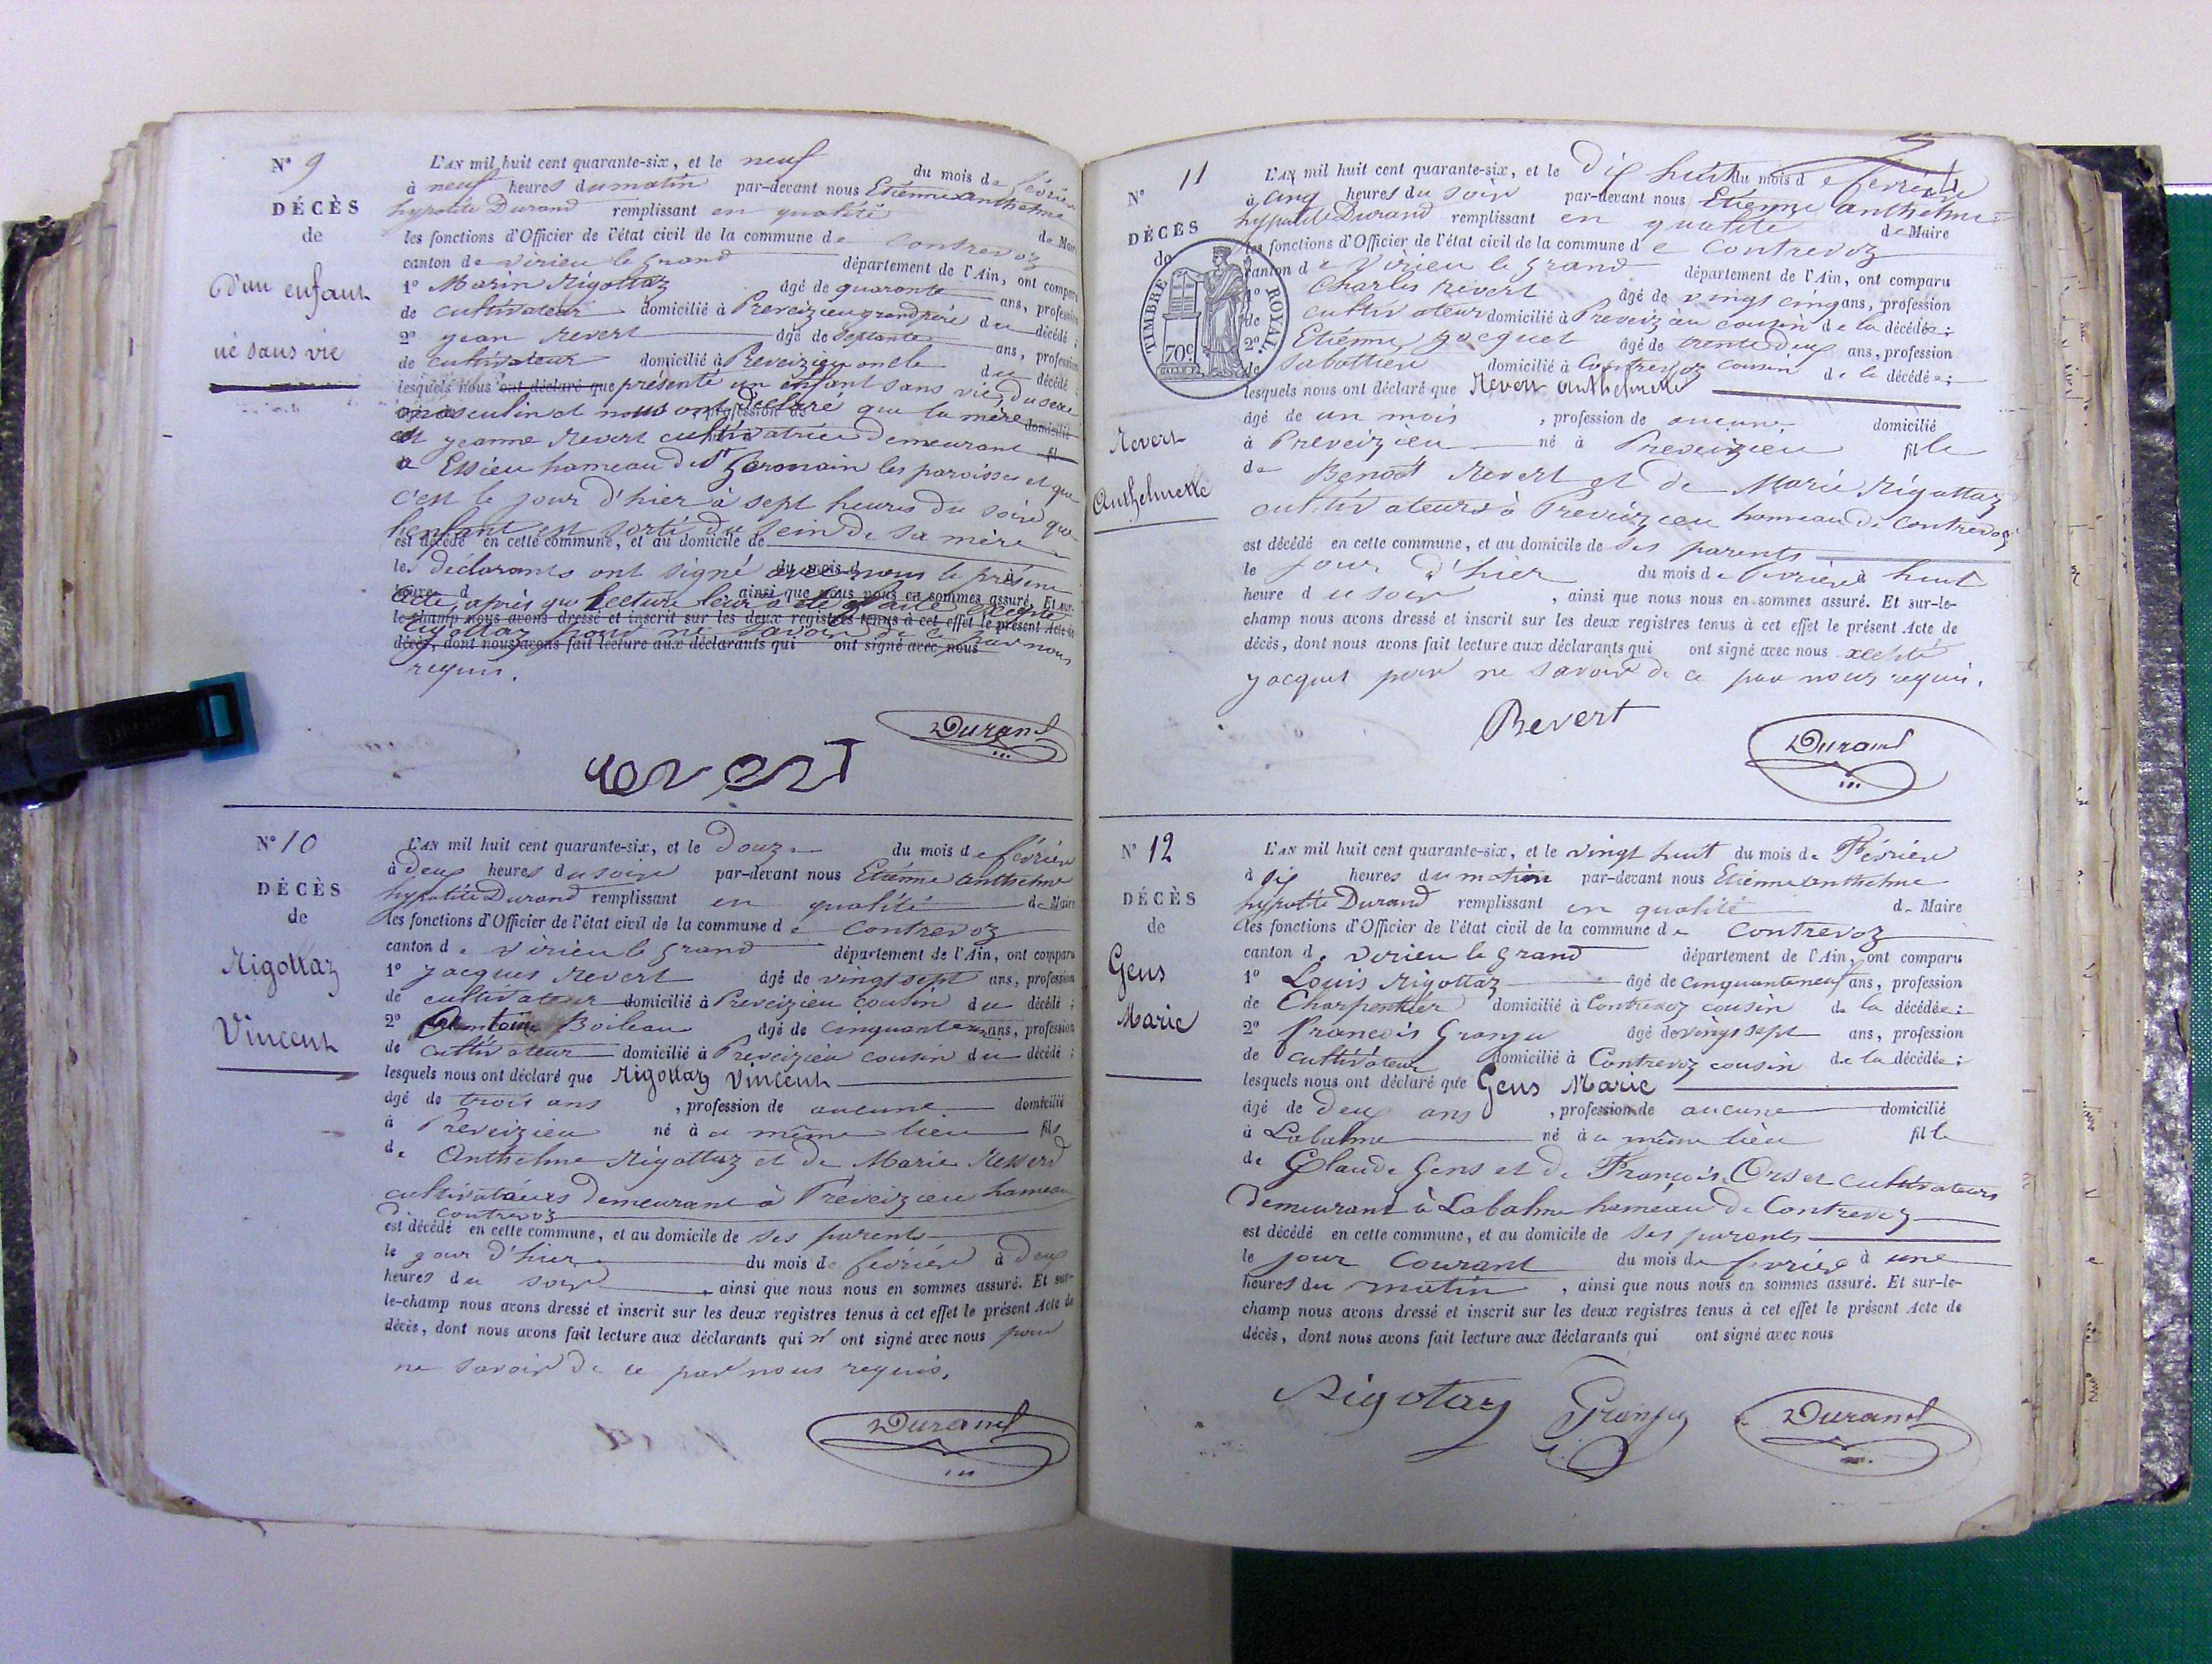 N° 9
DÉCÈS
de
D'un enfant
né sans vie
L'AN mil huit cent quarante-six, et le neuf du mois de février
à neuf heures du matin par-devant nous Etienne Anthelme
hypolite Durand remplissant en qualité de Maire
les fonctions d'Officier de l'état civil de la commune de Contrevoz
canton de Virieu le grand département de l'Ain, ont comparu
1° Marin Rigottaz âgé de quarante ans, profession
de cultivateur domicilié à Preveizieu grand père du décédé ;
2° jean Revert âgé de septante ans, profession
de cultivateur domicilié à Preveizieu oncle du décédé
lesquels nous ont déclaré que présenté un enfant sans vie, du sexe
masculin et nous ont déclaré que la mère
est jeanne Revert cultivatrice demeurant
a Essieu hameau de St Germain les paroisses et que
c'est le jour d'hier à sept heures du soir que
l'enfant est sorti du sein de sa mère
est décédé en cette commune, et au domicile de
les déclarants ont signé avec nous le présent
heures d ainsi que nous nous en sommes assuré. Et sur-
acte, après que lecture leur a été faite excepté
le-champ nous avons dressé et inscrit sur les deux registres tenus à cet effet le présent Acte de
Rigottaz pour ne savoir de ce par nous
décès, dont nous avons fait lecture aux déclarants qui ont signé avec nous
requis.
Durand
revert
N° 10
DÉCÈS
de
Rigottaz
Vincent
L'AN mil huit cent quarante-six, et le douze du mois de février
à deux heures du soir par-devant nous Etienne Anthelme
hypolite Durand remplissant en qualité de Maire
les fonctions d'Officier de l'état civil de la commune de Contrevoz
canton de Virieu le grand département de l'Ain, ont comparu
1° jacques Revert âgé de vingt sept ans, profession
de cultivateur domicilié à Preveizieu cousin du décédé ;
2° Antoine Boileau âgé de cinquante ans, profession
de cultivateur domicilié à Preveizieu cousin du décédé ;
lesquels nous ont déclaré que Rigottaz Vincent
âgé de trois ans , profession de aucune domicilié
à Preveizieu né à a même lieu fils
de Anthelme Rigottaz et de Marie
cultivateurs demeurant à Preveizieu hameau
de Contrevoz
est décédé en cette commune, et au domicile de ses parents
le jour d'hier du mois de février à deux
heures du soir , ainsi que nous nous en sommes assuré. Et sur-
le-champ nous avons dressé et inscrit sur les deux registres tenus à cet effet le présent Acte de
décès, dont nous avons fait lecture aux déclarants qui n' ont signé avec nous pour
ne savoir de ce par nous requis.
Durand
N° 11
DÉCÈS
de
TIMBRE ROYAL.
70c.
Revert
Anthelmette
L'AN mil huit cent quarante-six, et le dix huit du mois de février
à cinq heures du soir par-devant nous Etienne anthelme
hypolite Durand remplissant en qualité de Maire
les fonctions d'Officier de l'état civil de la commune de Contrevoz
canton de Virieu le grand département de l'Ain, ont comparu
1° Charles revert âgé de vingt cinq ans, profession
de cultivateur domicilié à Preveizieu cousin de la décédée ;
2° Etienne jacquet âgé de trente deux ans, profession
de sabottier domicilié à Contrevoz cousin de la décédée ;
lesquels nous ont déclaré que Revert anthelmette
âgé de un mois , profession de aucune domicilié
à Preveizieu né à Preveizieu fille
de Benoît Revert et de Marie Rigottaz
cultivateurs à Preveizieu hameau de Contrevoz
est décédé en cette commune, et au domicile de ses parents
le jour d'hier du mois de février à huit
heure d u soir , ainsi que nous nous en sommes assuré. Et sur-le-
champ nous avons dressé et inscrit sur les deux registres tenus à cet effet le présent Acte de
décès, dont nous avons fait lecture aux déclarants qui ont signé avec nous
jacquet pour ne savoir de ce par nous requis.
Revert
Durand
N° 12
DÉCÈS
de
Gens
Marie
L'AN mil huit cent quarante-six, et le vingt huit du mois de Février
à dix heures du matin par-devant nous Etienne anthelme
hypolite Durand remplissant en qualité de Maire
les fonctions d'Officier de l'état civil de la commune de Contrevoz
canton de Virieu le grand département de l'Ain, ont comparu
1° Louis Rigottaz âgé de cinquante neuf ans, profession
de Charpentier domicilié à Contrevoz cousin de la décédée ;
2° François Granju âgé de vingt sept ans, profession
de cultivateur domicilié à Contrevoz cousin de la décédée ;
lesquels nous ont déclaré que Gens Marie
âgé de deux ans , profession de aucune domicilié
à Labalme né à a même lieu fille
de Claude Gens et de François Orset cultivateurs
demeurant à Labalme hameau de Contrevoz
est décédé en cette commune, et au domicile de ses parents
le jour courant du mois de février à une
heures du matin , ainsi que nous nous en sommes assuré. Et sur-le-
champ nous avons dressé et inscrit sur les deux registres tenus à cet effet le présent Acte de
décès, dont nous avons fait lecture aux déclarants qui ont signé avec nous
Rigotaz Granju Durand